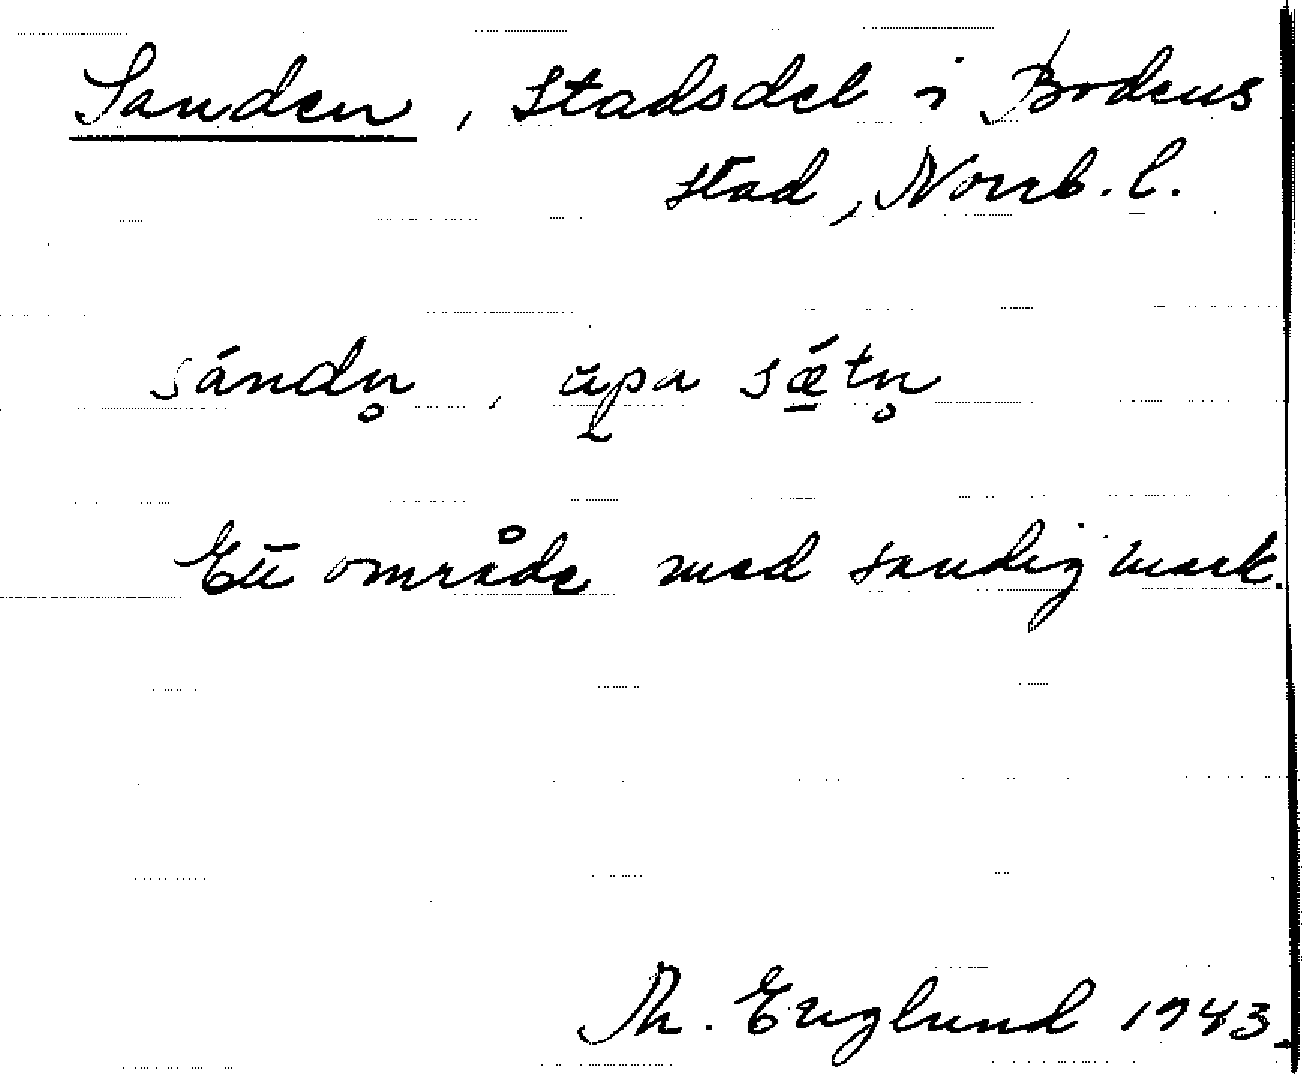 Sanden, Stadsdel i Bodens
stad, Norrb. l.
sándn̥, ŭpa sǽ̱tn̥
Ett område med sandig mark.
Th. Englund 1943.